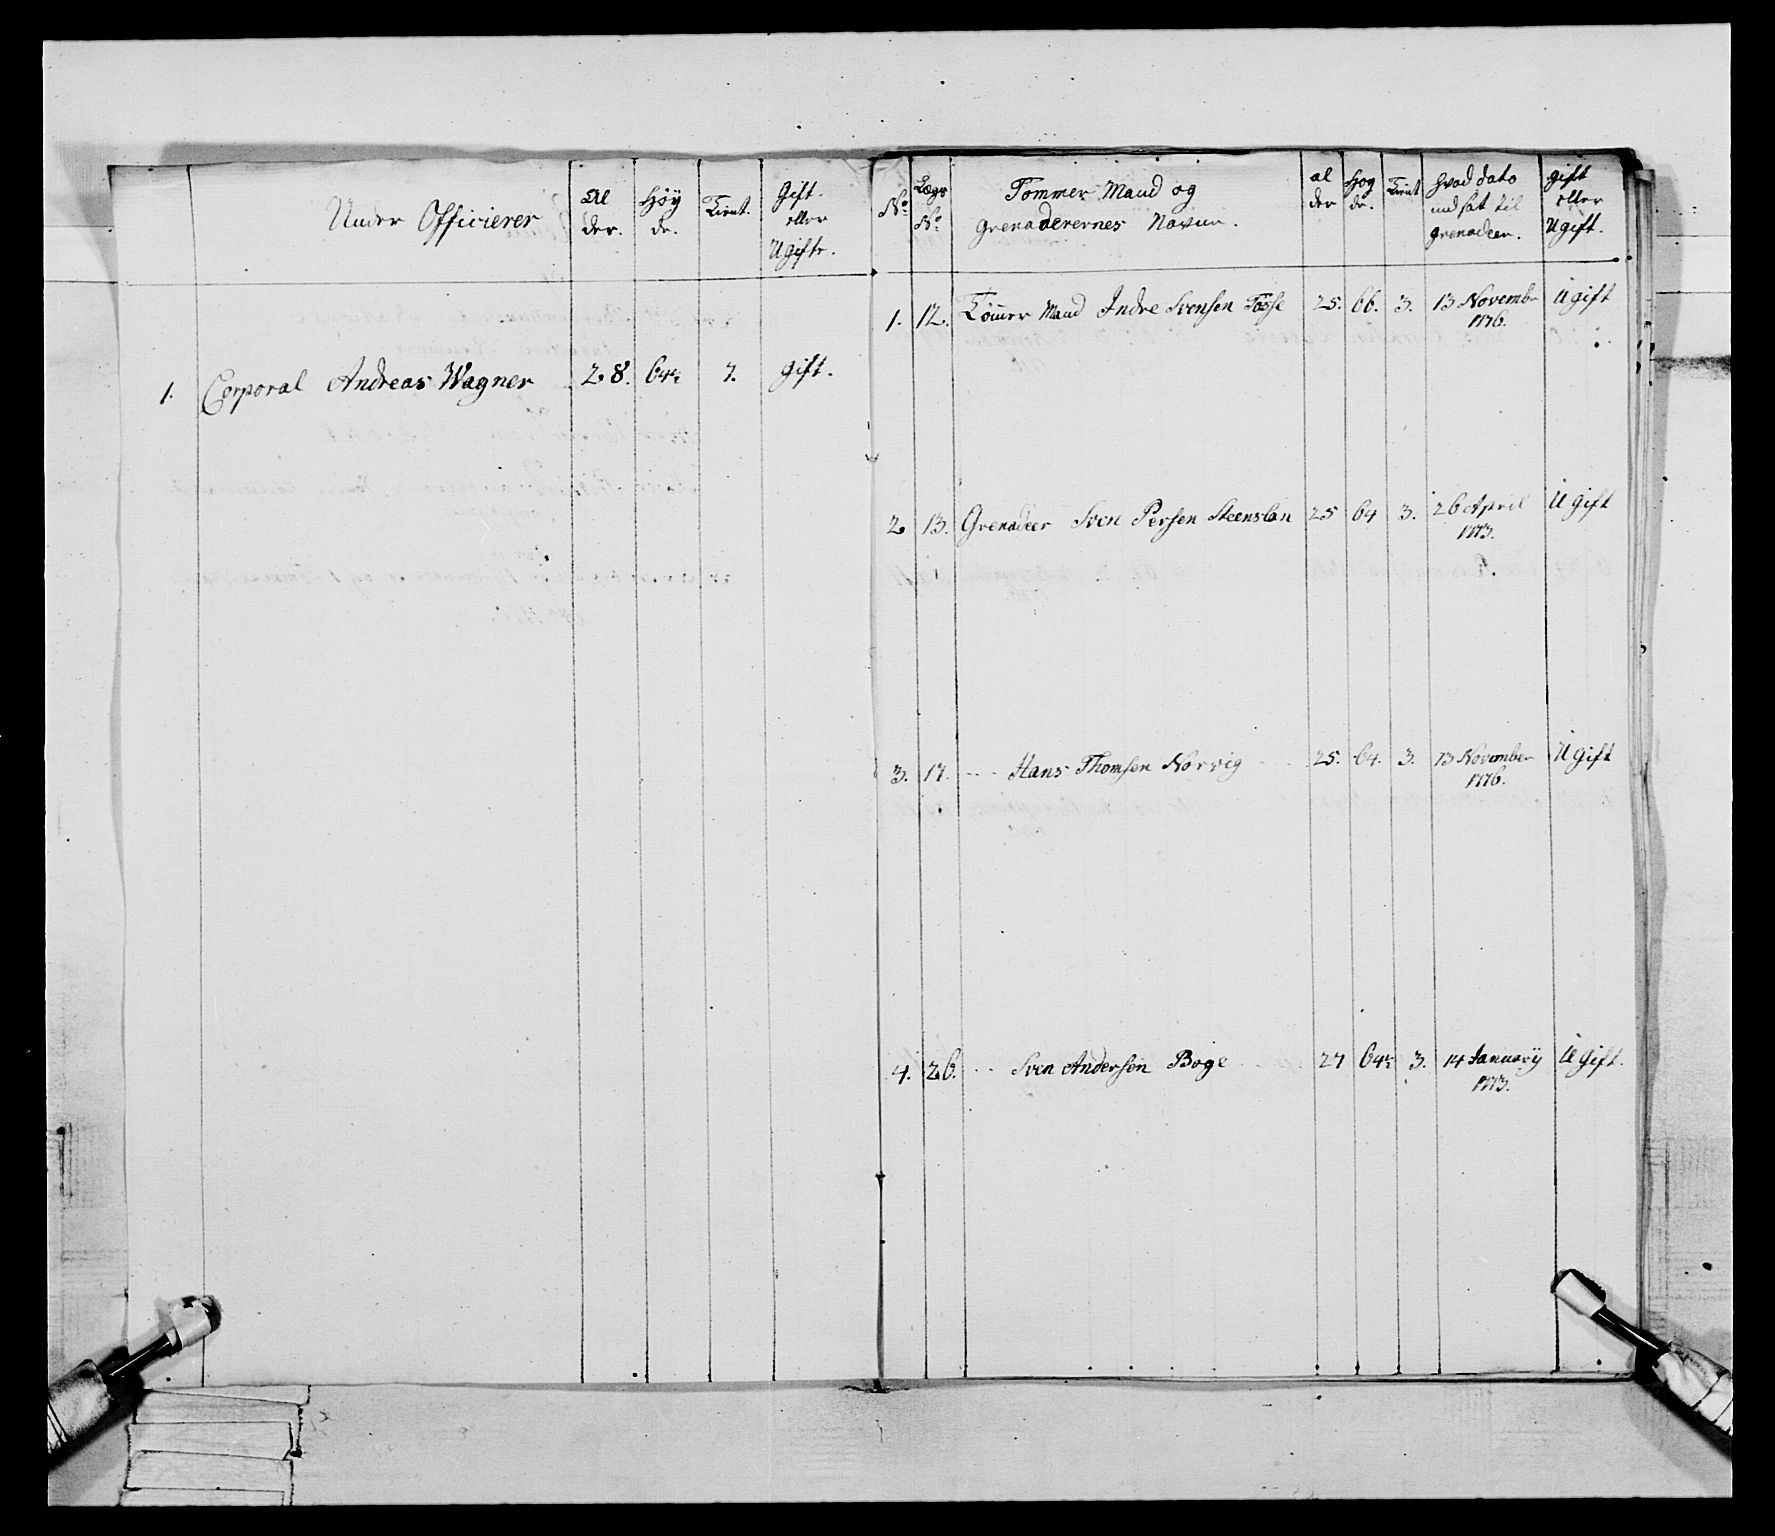 Under Officierer
Al
der.
Höÿ
de.
Tient.
Gift
eller
Ugift.
1. Corporal Andreas Wagner 28. 64½ 7. gift.
No
Lægs
No
Tømmer Mand og
grenaderernes Navne.
al
der
Høÿ
de.
Tient
hvad dato
indsat til
grenadeer.
gift
eller
Ugift.
1. 12. Tömer Mand Indre Svensen Tösse 25. 66. 3. 13 Novembr Ugift
1776.
2 13. Grenadeer Sven Persen Steensløn 25 64 3. 26 April Ugift
1773.
3. 17. --- Hans Thomsen Norvig 25. 64. 3. 13 November Ugift
1776.
4. 26. -- Sven Andersen Boge 27 64½ 3. 14 Januarÿ Ugift.
1773.